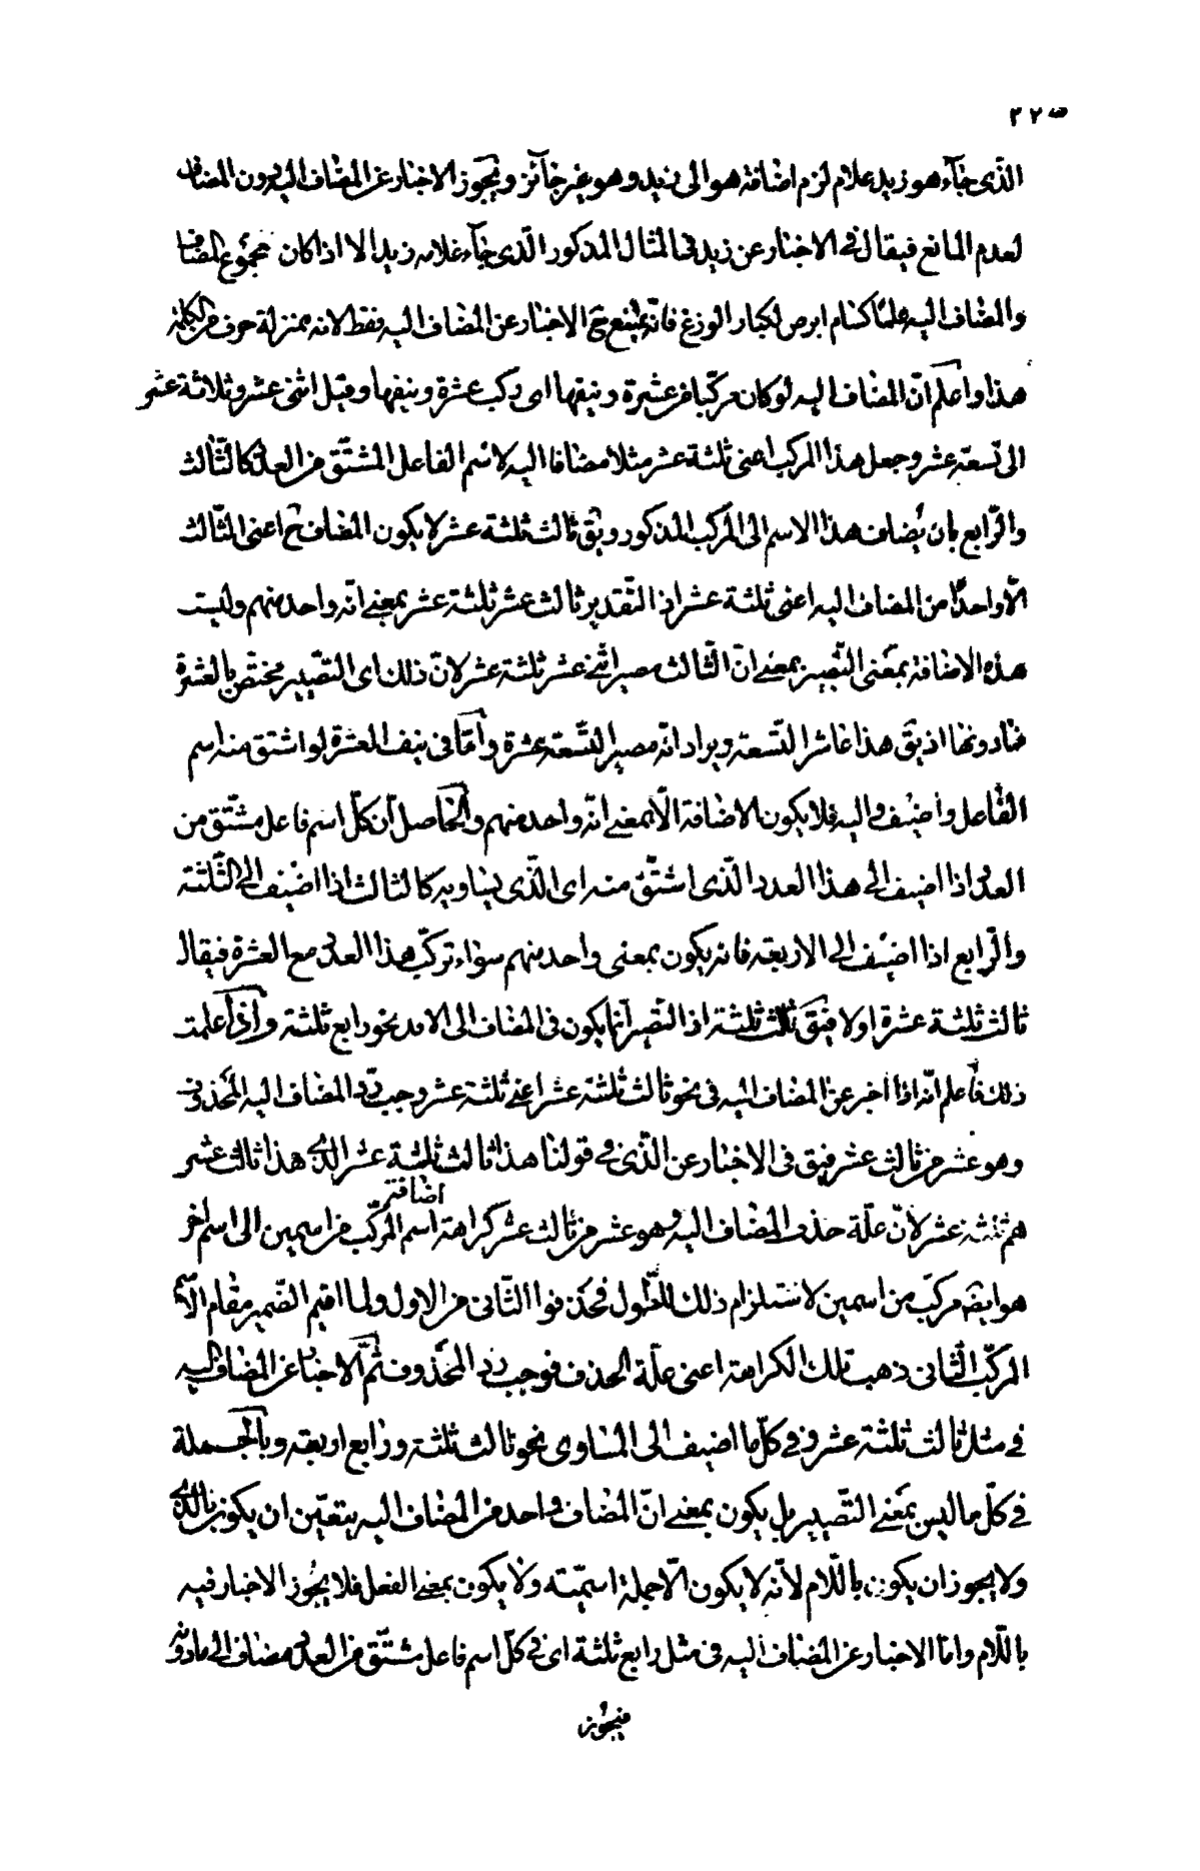 ٢٢٥
الذى جآء هو زيد غلام لزم اضافة هو الى زيد وهو غير جآئز ويجوز الاخبار عن المضاف اليه دون المضاف
لعدم المانع فيقال فى الاخبار عن زيد فى المثال المذكور الّذى جآء غلامه زيد الا اذا كان مجموع المضاف
والمضاف اليه علمًا كسام ابرص لكبار الوزغ فانّه يمتنع ح الاخبار عن المضاف اليه فقط لانه بمنزلة حرف من الكلمة
هذا واعلم انّ المضاف اليه لو كان مركّبا من عشرة ونيفها اى ركب عشرة ونيفها وقيل اثنى عشر وثلاثة عشر
الى تسعة عشر وجعل هذا المركب اعنى ثلثة عشر مثلا مضافا اليه لاسم الفاعل المشتّق من العدد كالثّالث
والرّابع بان يُضاف هذا الاسم الى المركب المذكور ويق ثالث ثلثة عشر لا يكون المضاف ح اعنى الثّالث
الّا واحدًا من المضاف اليه اعنى ثلثة عشر اذ التقدير ثالث عشر ثلثة عشر بمعنى انّه واحد منهم وليست
هذه الاضافة بمعنى التّصيير بمعنى انّ الثّالث مصير اثنى عشر ثلثة عشر لانّ ذلك اى التصّيير مختصّ بالعشرة
فما دونها اذ يق هذا عاشر التسعة ويراد انّه مصير التسعة عشرة وامّا فى نيف العشرة لو اشتق منه اسم
الفاعل واضيف اليه فلا يكون الاضافة الّا بمعنى انّه واحد منهم والحاصل انّ كلّ اسم فاعل مشتّق من
العدد اذا اضيف الى هذا العدد الّذى اشتّق منه اى الّذى يساويه كالثالث اذا اضيف الى الثّلثة
والرّابع اذا اضيف الى الاربعة فانه يكون بمعنى واحد منهم سواء تركّب هذا العدد مع العشرة فيقال
ثالث ثلثة عشرة اولا فيق ثالث ثلثة اذ التصيير انّما يكون فى المضاف الى الادون نحو رابع ثلثة واذا علمت
ذلك فاعلم انّه اذا اخبر عن المضاف اليه فى نحو ثالث ثلثة عشر اعنى ثلثة عشر وجب ردّ المضاف اليه المحذوف
وهو عشر من ثالث عشر فيق فى الاخبار عن الّذى فى قولنا هذا ثالث ثلثة عشر الذى هذا ثالث عشر
هم ثلثة عشر لانّ علّة حذف المضاف اليه وهو عشر من ثالث عشر كراهة اضافة اسم المركّب من اسمين الى اسم اخر
هو ايضا مركّب من اسمين لاستلزام ذلك للطّول فحذفوا الثّانى من الاول ولما اقيم الضّمير مقام الاسم
المركّب الثّانى ذهب تلك الكراهة اعنى علّة الحذف فوجب ردّ المحذوف ثمّ الاخبار عن المضاف اليه
فى مثل ثالث ثلثة عشر وفى كلّ ما اضيف الى المساوى نحو ثالث ثلثة ورابع اربعة وبالجملة
فى كلّ ما ليس بمعنى التصّيير بل يكون بمعنى انّ المضاف واحد من المضاف اليه يتعيّن ان يكون بالذى
ولا يجوز ان يكون باللّام لانّه لا يكون الّا جملة اسميّة ولا يكون بمعنى الفعل فلا يجوز الاخبار فيه
باللّام وامّا الاخبار عن المضاف اليه فى مثل رابع ثلثة اى فى كلّ اسم فاعل مشتّق من العدد مضاف الى ما دونه
فيجوز